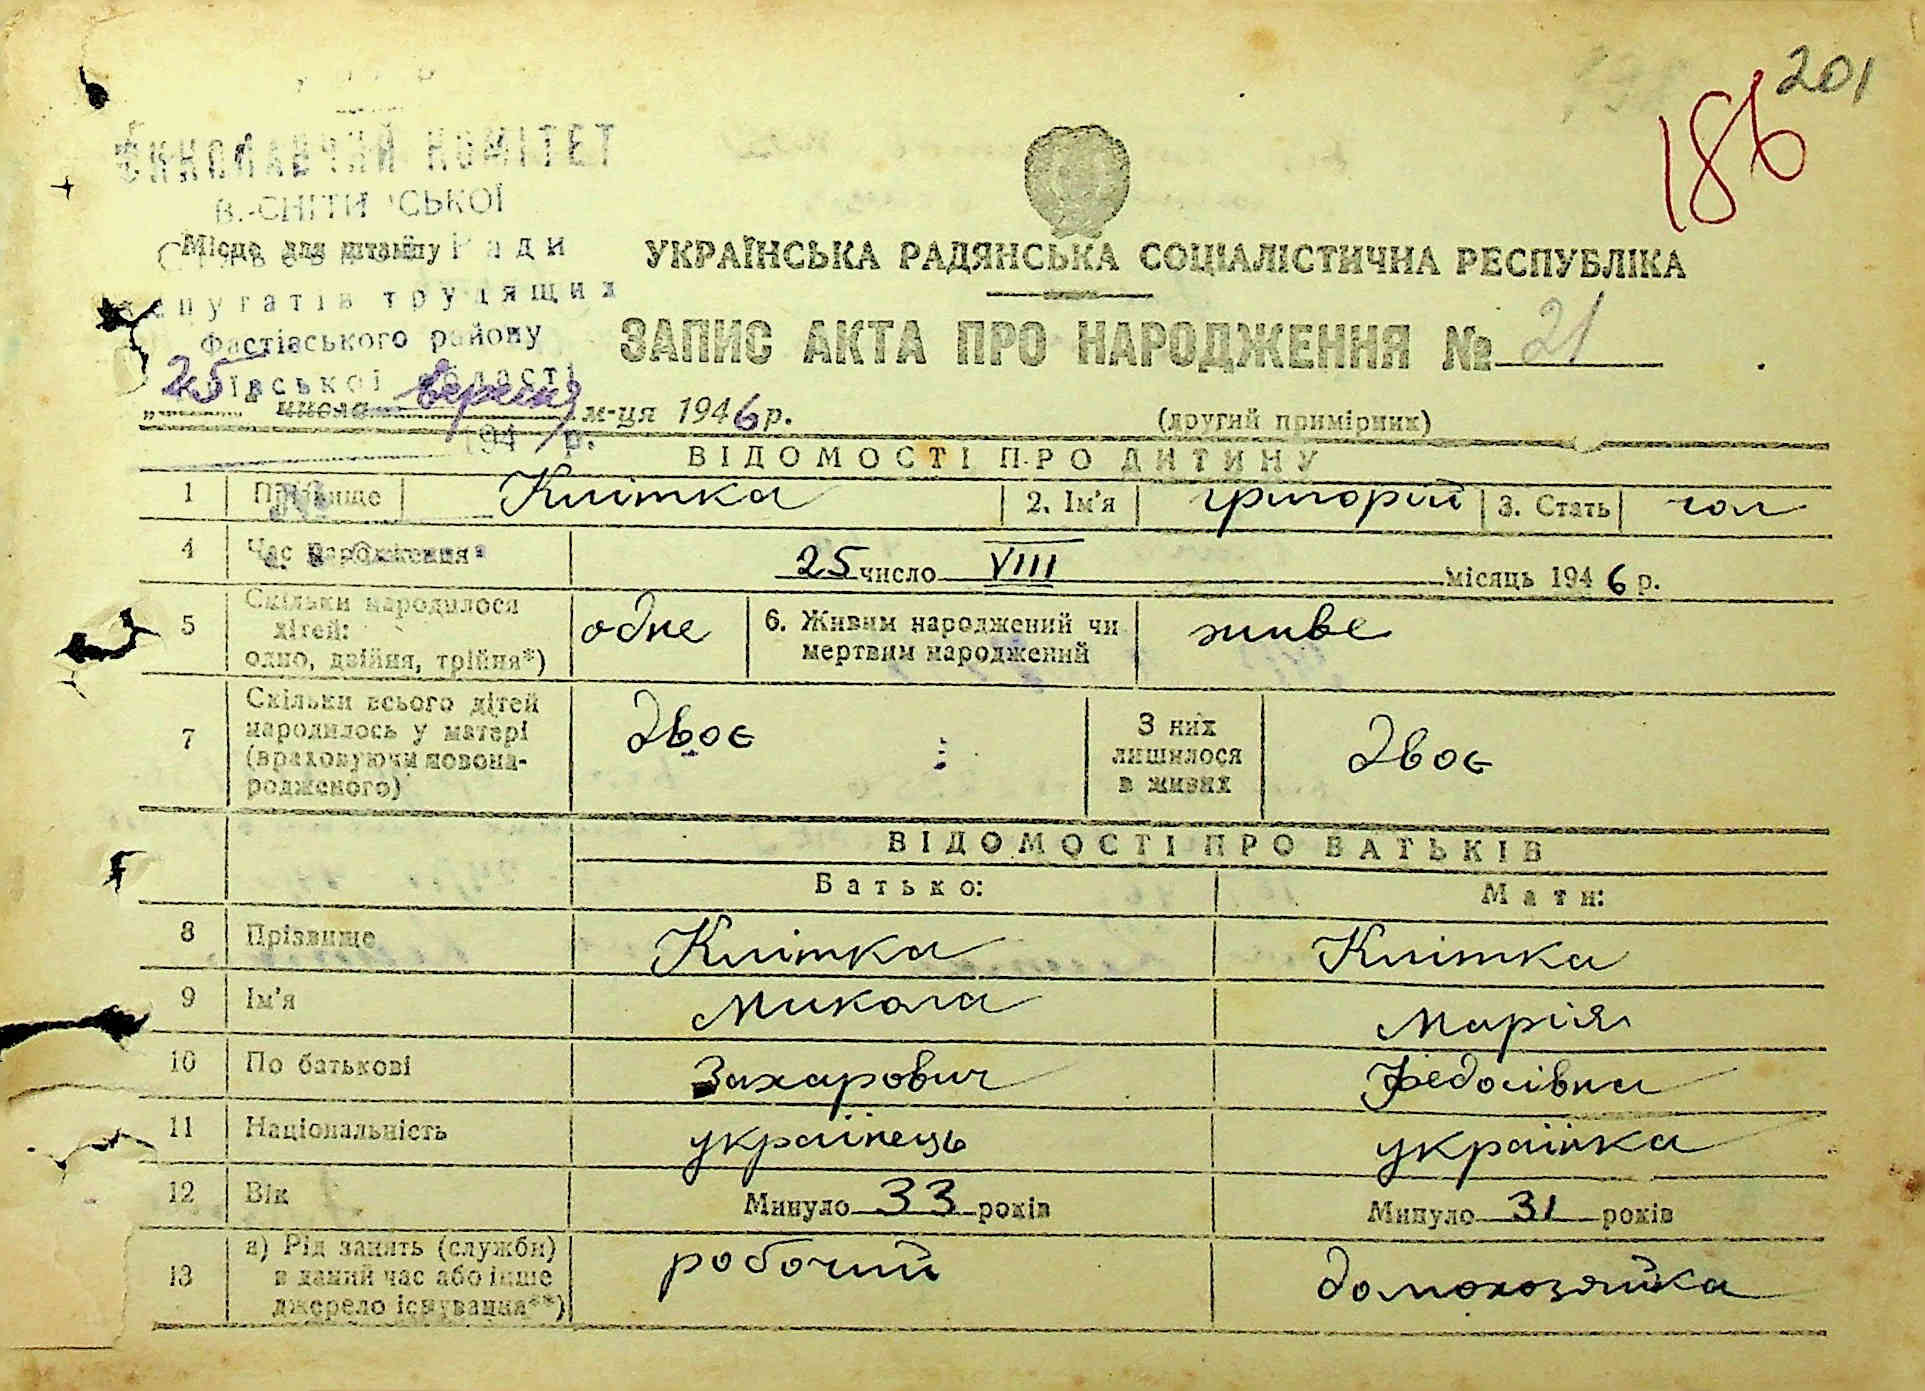 201
186
ВИКОНАВЧИЙ КОМІТЕТ
В.-СНІТИНСЬКОЇ
Місце для штампу Ради
депутатів трудящих
Фастівського району
Київської області
УКРАЇНСЬКА РАДЯНСЬКА СОЦІАЛІСТИЧНА РЕСПУБЛІКА
ЗАПИС АКТА ПРО НАРОДЖЕННЯ № 21
„25" числа вересня м-ця 1946 р.
(другий примірник)
194 р.
ВІДОМОСТІ ПРО ДИТИНУ
1 Прізвище Клітка 2. Ім'я григорій 3. Стать чол
4 Час народження 25 число VIII місяць 1946 р.
5 Скільки народилося дітей: одно, двійня, трійня*) одне 6. Живим народжений чи мертвим народжений живе
7 Скільки всього дітей народилось у матері (враховуючи новонародженого) двоє З них лишилося в живих двоє
ВІДОМОСТІ ПРО БАТЬКІВ
Батько: Мати:
8 Прізвище Клітка Клітка
9 Ім'я Микола Марія
10 По батькові Захарович Федосівна
11 Національність українець українка
12 Вік Минуло 33 років Минуло 31 років
13 а) Рід занять (служби) в даний час або інше джерело існування**) робочий домохозяйка